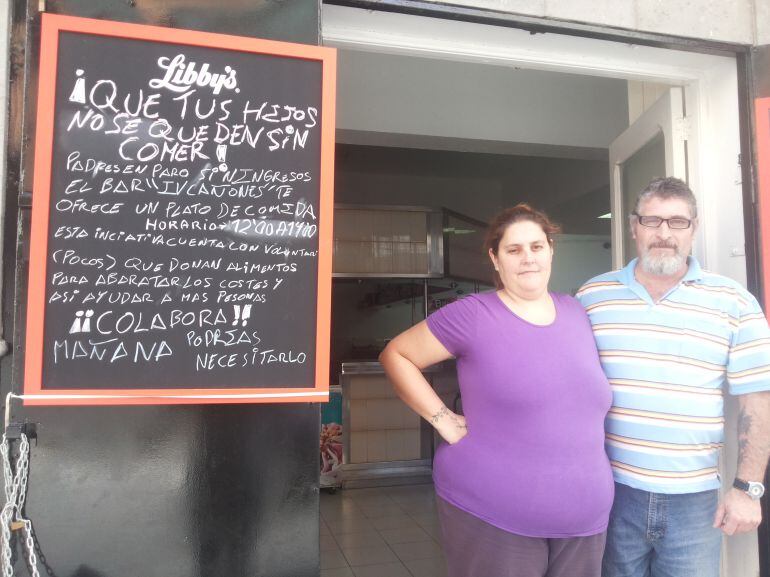 Libby's
¡QUE TUS HIJOS
NO SE QUEDEN SIN
COMER!
PADRES EN PARO SIN INGRESOS
EL BAR "
TE
OFRECE UN PLATO DE COMIDA
HORARIO
ESTA INCIATIVA CUENTA CON VOLUNTARI
(POCOS) QUE DONAN ALIMENTOS
PARA ABARATAR LOS COSTES Y
ASI AYUDAR A MAS PESONAS
¡¡COLABORA!!
MAÑANA PODRÍAS
NECESITARLO